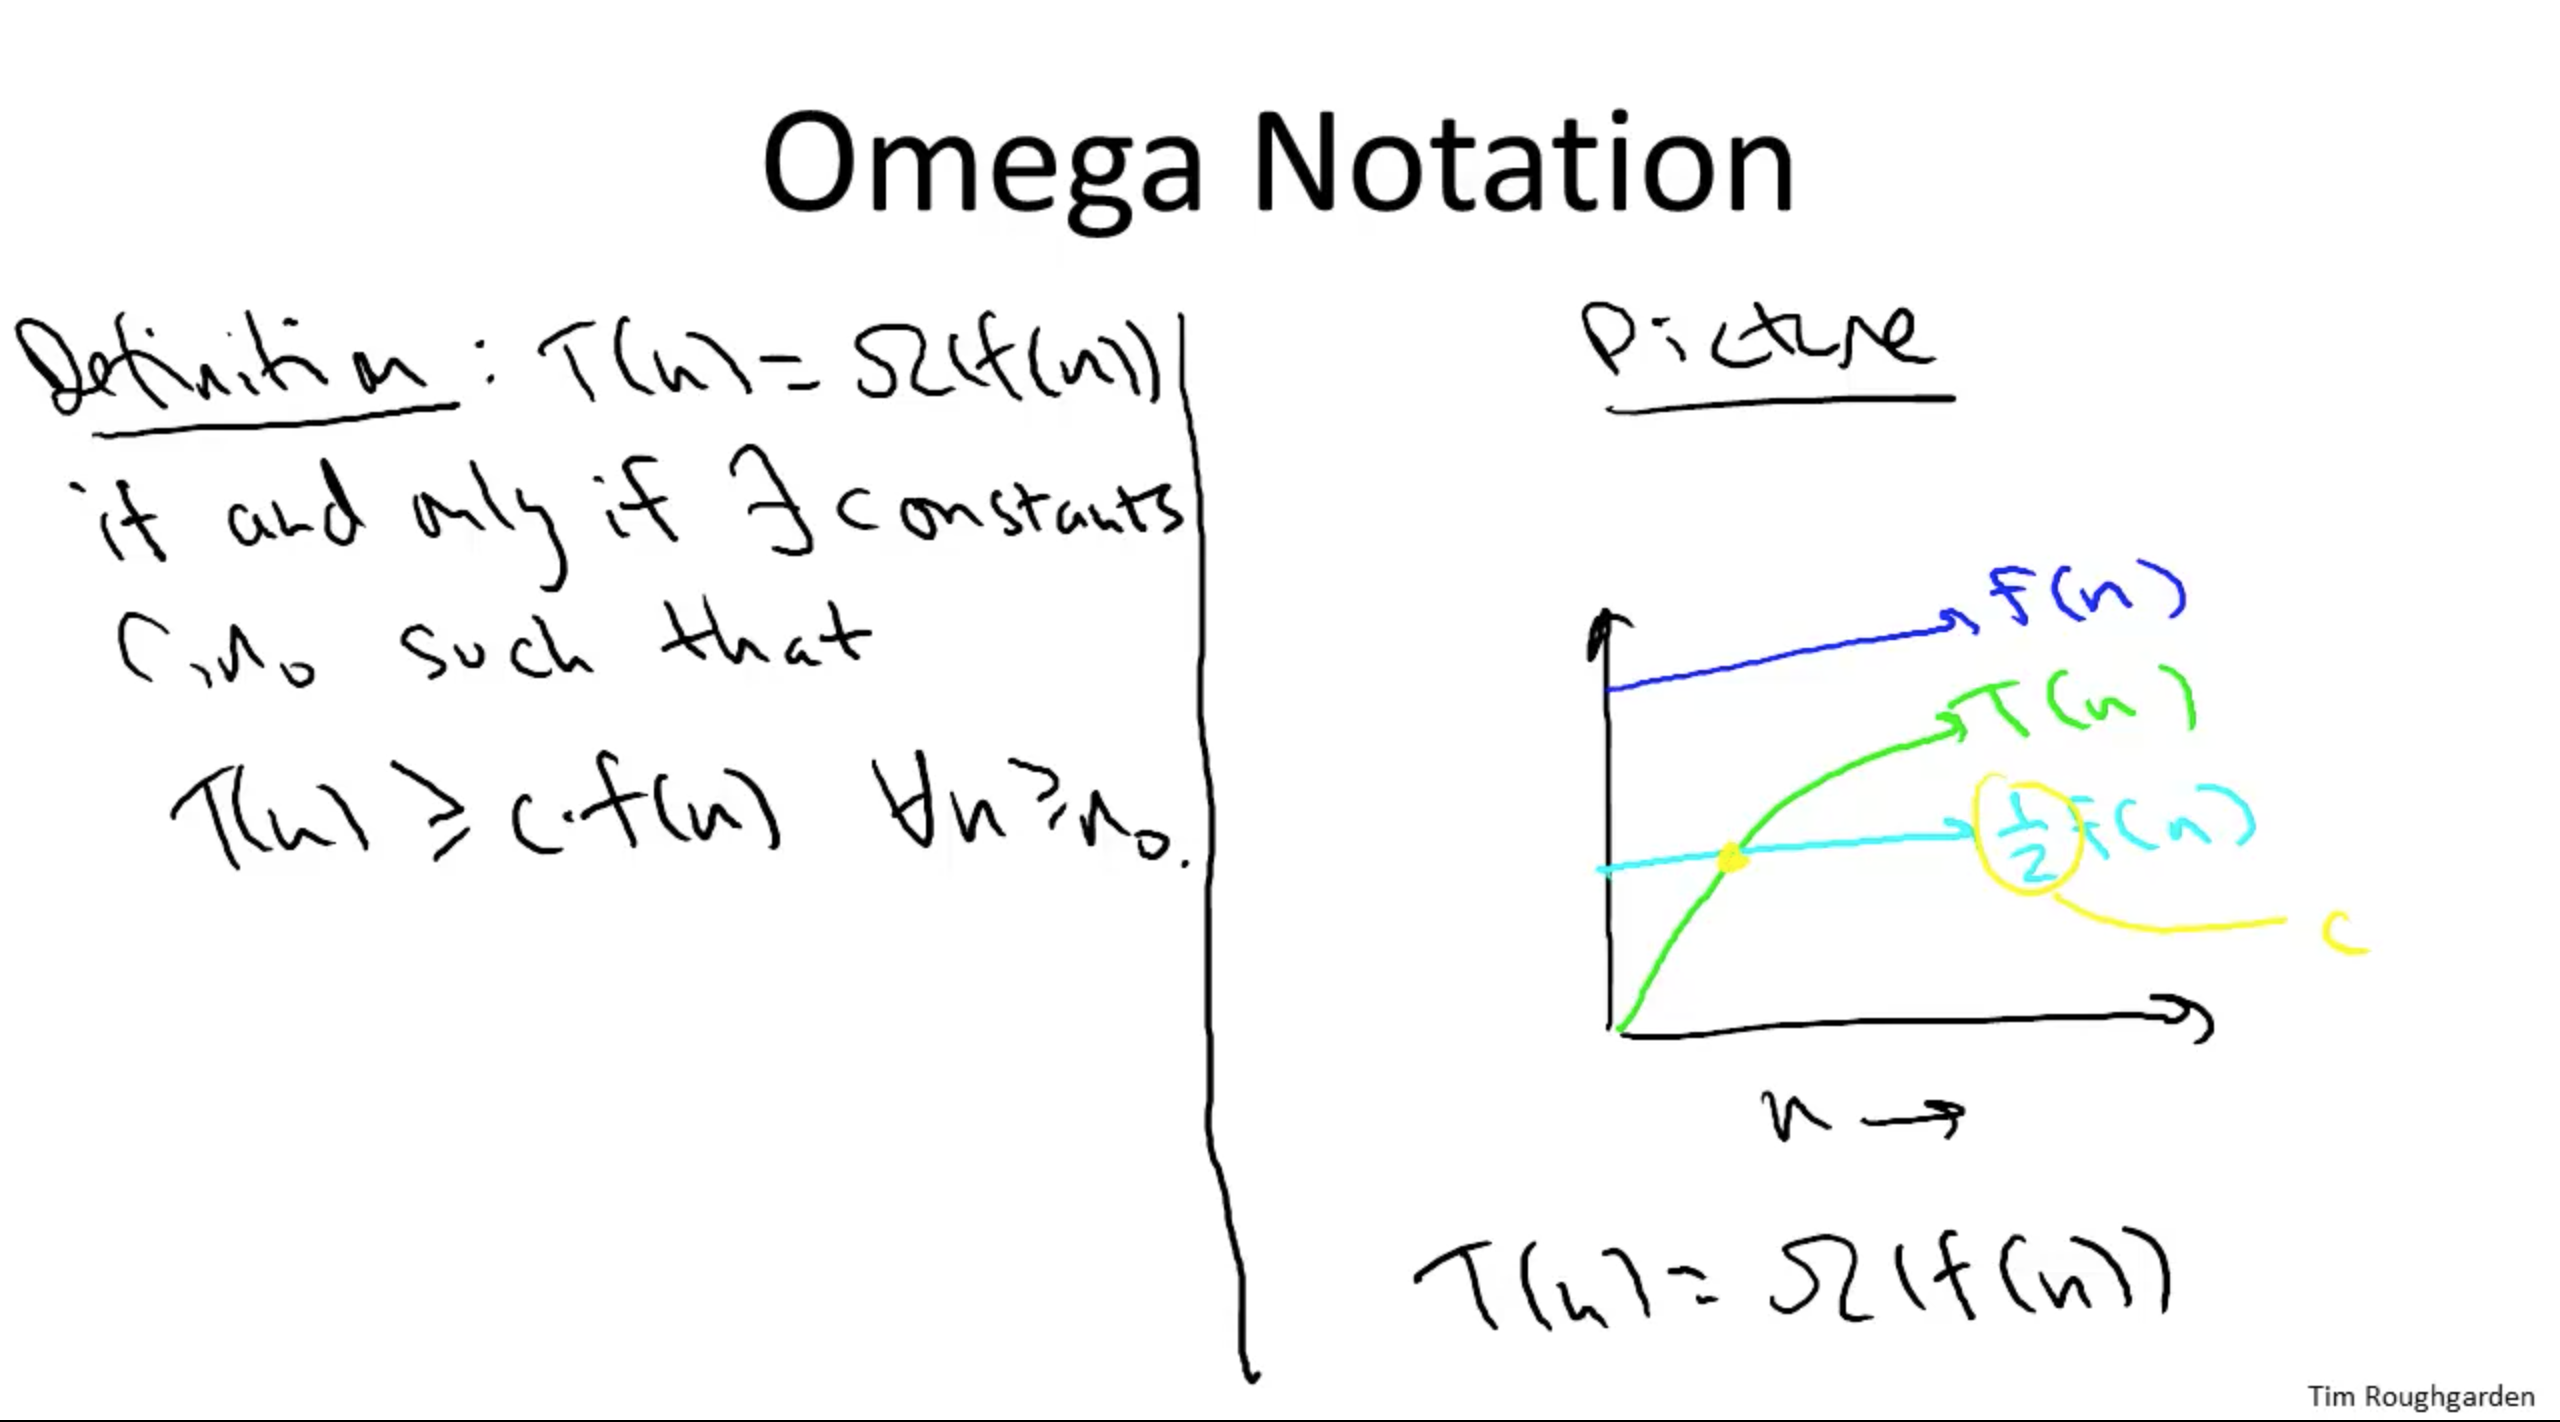 Omega Notation
Definition: T(n) = Ω(f(n))
if and only if ∃ constants
c, n₀ such that
T(n) ≥ c·f(n) ∀n ≥ n₀.
Picture
f(n)
T(n)
½ f(n)
c
n →
T(n) = Ω(f(n))
Tim Roughgarden